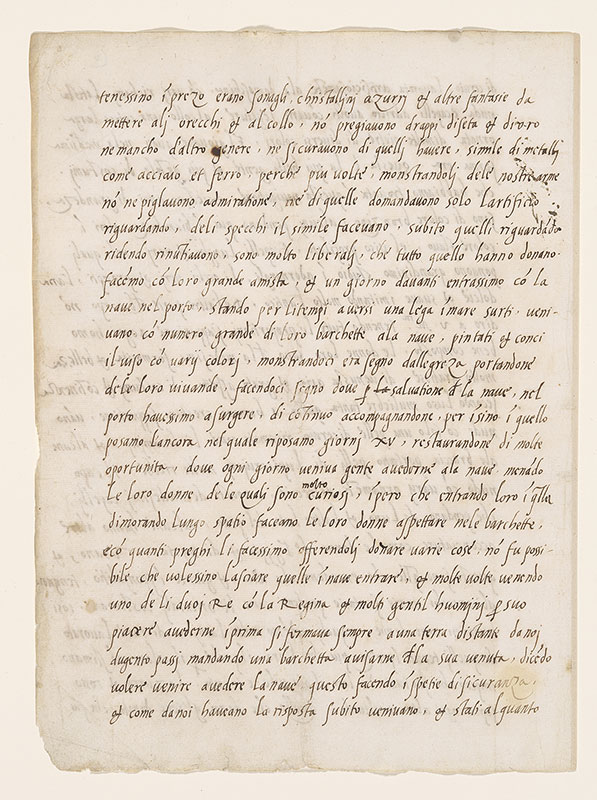 tenessino ĩ prezo erano sonagli, christallinj azurrj & altre fantasie da
mettere alj orecchi & al collo, nõ pregiavono drappi di seta & di oro
ne mancho d'altro genere, ne si curavono di quellj havere, simile di metallj
come acciaio et ferro, perche piu volte, monstrandoli dele nostre arme
nõ ne piglavono admiratione, ne di quelle domandavono solo lartificio
riguardando, deli specchi il simile facevano, subito quelli riguardãdo
ridendo rinutiavono, sono molto liberalj, che tutto quello hanno donano.
facemo cõ loro grande amista, & un giorno davanti entrassimo cõ la
nave nel porto, stando per li tempi aversi una lega ĩ mare surti, veni-
vano cõ numero grande di loro barchette ala nave, pintati & conci
il viso cõ varij colorj, monstrandoci era segno dallegreza portandone
dele loro vivande, facendoci segno dove ꝑ salvatione đla nave, nel
porto havessimo a surgere, di cõtinuo accompagnandone, per ĩsino ĩ quello
posamo lancora, nel quale riposamo giorni xv, restaurandone di molte
oportunita, dove ogni giorno veniva gente avederne ala nave menãdo
le loro donne, de le quali sono molto curiosj, ĩpero che entrando loro ĩ q̃lla
dimorando lungo spatio faceano le loro donne aspettare nele barchette,
ecõ quanti preghi li facessimo offerendoli donare varie cose, nõ fu possi-
bile che volessino lasciare quelle ĩ nave entrare, & molte volte venendo
uno de li duoj Re cõ la Regina & molti gentil huominj ꝑ suo
piacere avederne ĩ prima si fermava sempre a una terra distante da noj
dugento passj mandando una barchetta avisarne đla sua venuta, dicẽdo
volere venire avedere la nave questo facendo ĩ spetie di sicuranza,
& come da noi haveano la risposta subito venivano, & stati alquanto